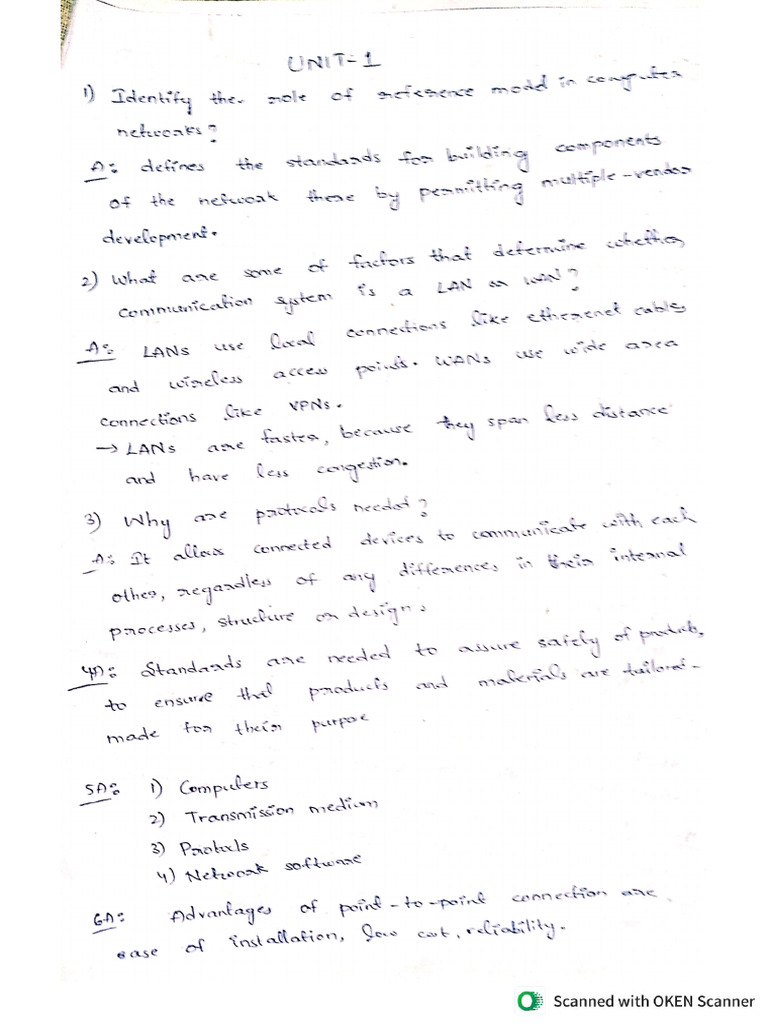 UNIT-1
1) Identify the role of reference model in computer
networks?
A: defines the standards for building components
of the network there by permitting multiple-vendor
development.
2) What are some of factors that determine whether
communication system is a LAN or WAN?
A: LANs use local connections like etherenet cables
and wireless access points. WANs use wide area
connections like VPNs.
→ LANs are faster, because they span less distance
and have less congestion.
3) Why are protocals needed?
A: It allows connected devices to communicate with each
other, regardless of any differences in their internal
processes, structure or design.
4A: Standards are needed to assure safely of products,
to ensure that products and materials are tailored-
made for their purpose
5A: 1) Computers
2) Transmission medium
3) Protols
4) Network software
6A: Advantages of point-to-point connection are
ease of installation, low cost, reliability.
Scanned with OKEN Scanner